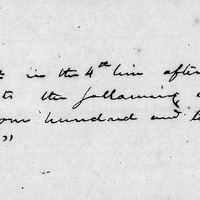 in the 4th line after
the following
hundred and
"